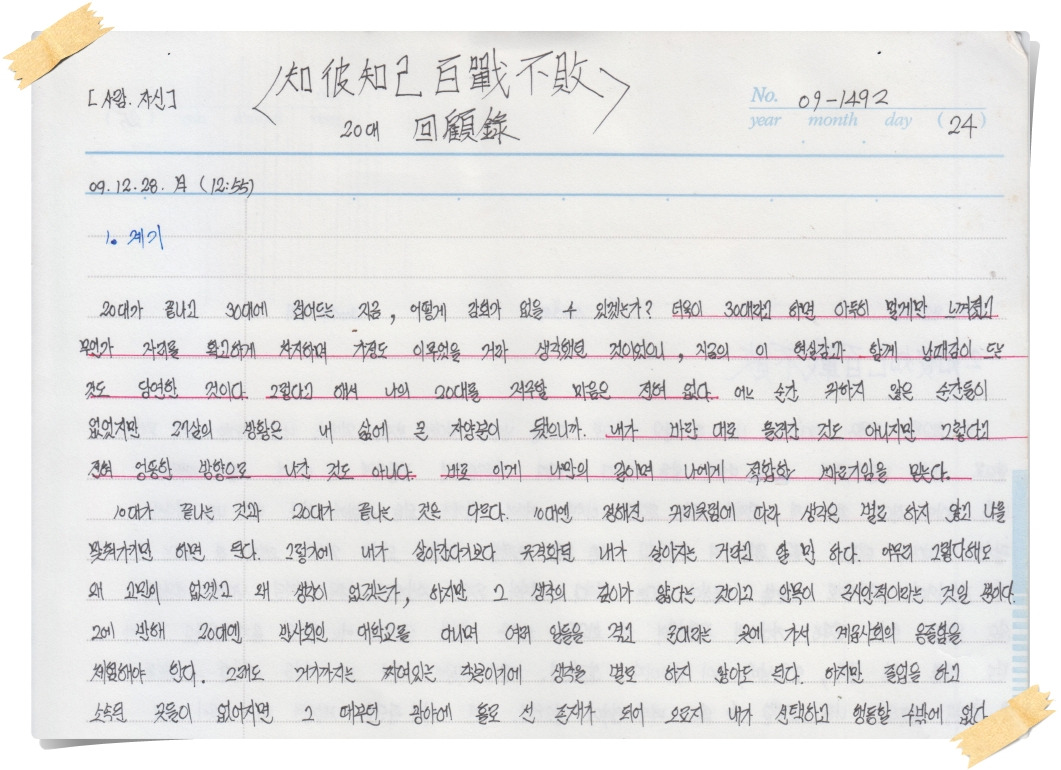 [사람. 자신]
〈知彼知己 百戰不敗〉
20대 回顧錄
No. 09-1492
year month day (24)
09. 12. 28. 月 (12:55)
1. 계기
20대가 끝나고 30대에 접어드는 지금, 어떻게 감회가 없을 수 있겠는가? 더욱이 30대라고 하면 아득히 멀게만 느껴졌고
무언가 자리를 확고하게 차지하며 가정도 이루었을 거라 생각했던 것이었으니, 지금의 이 현실감과 함께 낭패감이 드는
것도 당연한 것이다. 그렇다고 해서 나의 20대를 저주할 마음은 전혀 없다. 어느 순간 귀하지 않은 순간들이
없었지만 27살의 방황은 내 삶에 큰 자양분이 됐으니까. 내가 바란 대로 흘러간 것도 아니지만 그렇다고
전혀 엉뚱한 방향으로 나간 것도 아니다. 바로 이게 나만의 길이며 나에게 적합한 빠르기임을 믿는다.
10대가 끝나는 것과 20대가 끝나는 것은 다르다. 10대엔 정해진 커리큘럼에 따라 생각은 별로 하지 않고 나를
맞춰가기만 하면 된다. 그렇기에 내가 살아간다기보다 규격화된 내가 살아지는 거라고 할 만 하다. 아무리 그렇다해도
왜 고민이 없겠고 왜 생각이 없겠는가, 하지만 그 생각의 깊이가 얇다는 것이고 안목이 근시안적이라는 것일 뿐이다.
그에 반해 20대엔 반사회인 대학교를 다니며 여러 일들을 겪고 군대라는 곳에 가서 계급사회의 응졸함을
체험해야 한다. 그래도 거기까지는 짜여있는 각본이기에 생각을 별로 하지 않아도 된다. 하지만 졸업을 하고
소속된 곳들이 없어지면 그 때부턴 광야에 홀로 선 존재가 되어 오로지 내가 선택하고 행동할 수밖에 없다.